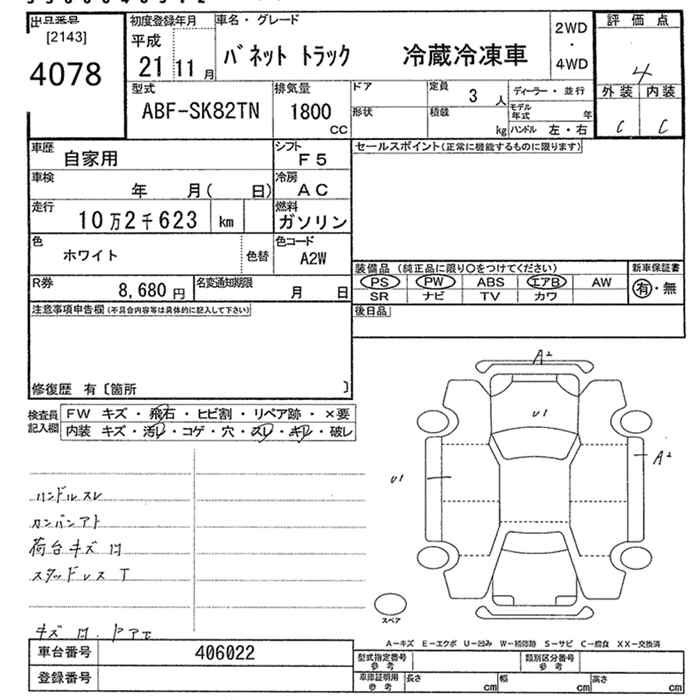 出品番号
[2143]
4078
初度登録年月
平成
21 11 月
車名・グレード
バネット トラック 冷蔵冷凍車
2WD
・
4WD
評価点
4
外装 内装
C C
型式
ABF-SK82TN
排気量
1800
CC
ドア
形状
定員
3 人
積載
kg
ディーラー・並行
モデル年式 年
ハンドル 左・右
車歴
自家用
シフト
F5
車検
年 月( 日)
冷房
AC
走行
10万2千623 km
燃料
ガソリン
色
ホワイト
色替
色コード
A2W
R券
8,680 円
名変通知期限
月 日
セールスポイント(正常に機能するものに限ります)
装備品 (純正品に限り〇をつけてください)
PS PW ABS エアB AW
SR ナビ TV カワ
新車保証書
有・無
後日品
注意事項申告欄(不具合内容等は具体的に記入して下さい)
修復歴 有〔箇所 〕
検査員記入欄
FW キズ・飛石・ヒビ割・リペア跡・×要
内装 キズ・汚レ・コゲ・穴・スレ・キレ・破レ
ハンドルスレ
カンバンアト
荷台キズ 凹
スタッドレス T
キズ 凹. ドアE
A2
U1
U1
A2
スペア
A-キズ E-エクボ U-凹み W-補修跡 S-サビ C-腐食 XX-交換済
車台番号 406022
登録番号
型式指定番号 参考
類別区分番号 参考
車庫証明用 参考
長さ cm
幅 cm
高さ cm